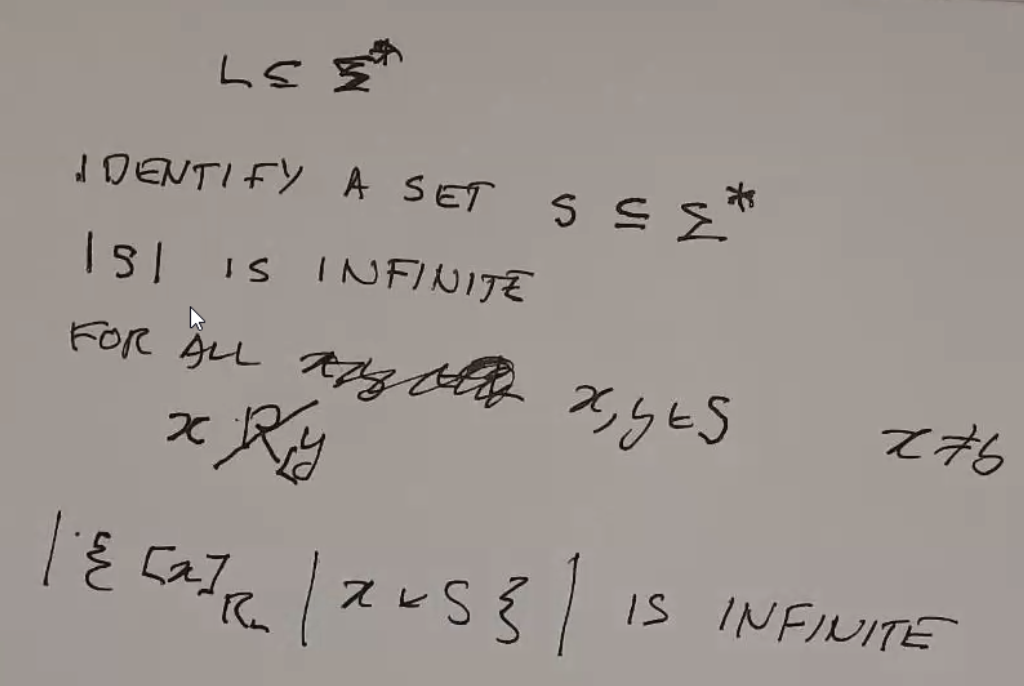 L ⊆ Σ*
IDENTIFY A SET S ⊆ Σ*
|S| IS INFINITE
FOR ALL x, y ∈ S x ≠ y
x R̸_L y
|{ [x]_{R_L} | x ∈ S }| IS INFINITE